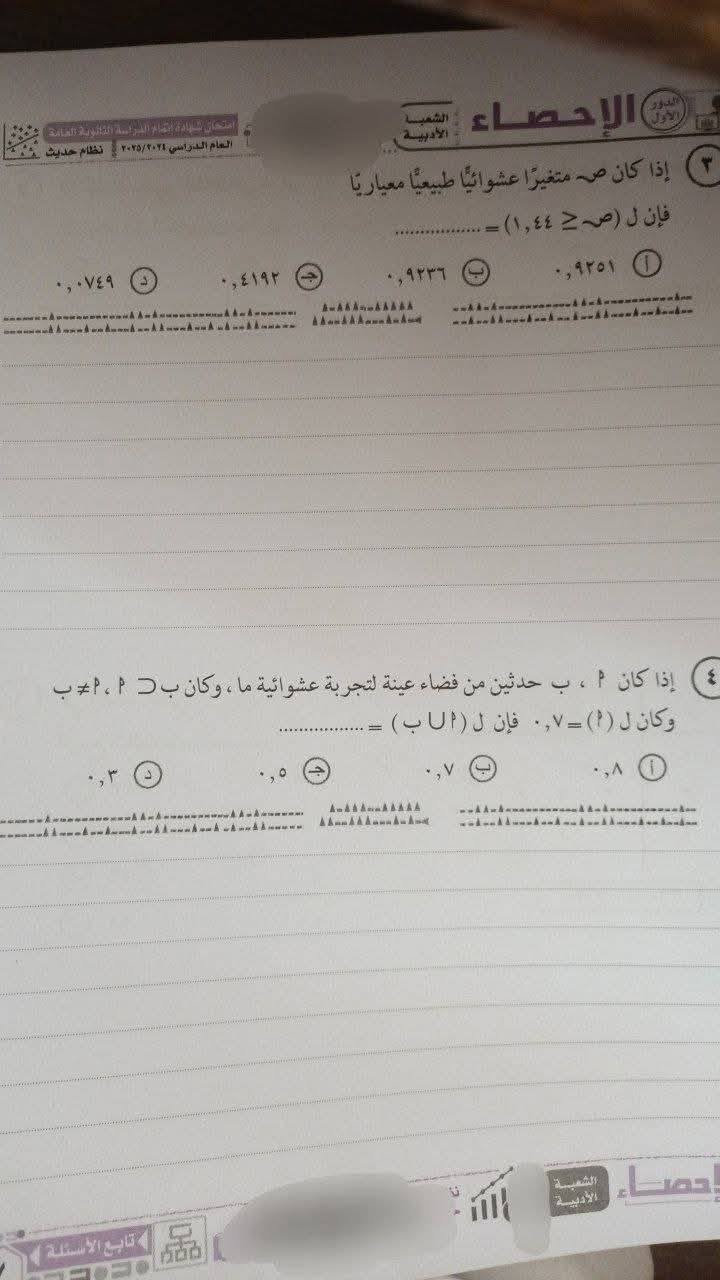 الدور الأول
الإحصاء
الشعبة الأدبية
امتحان شهادة إتمام الدراسة الثانوية العامة
العام الدراسي ٢٠٢٥/٢٠٢٤ نظام حديث
٣ إذا كان ص متغيرًا عشوائيًّا طبيعيًّا معياريًا
فإن ل (ص ≥ ١,٤٤) = .................
أ ٠,٩٢٥١ ب ٠,٩٢٣٦ جـ ٠,٤١٩٢ د ٠,٠٧٤٩
٤ إذا كان أ ، ب حدثين من فضاء عينة لتجربة عشوائية ما ، وكان ب ⊂ أ ، أ ≠ ب
وكان ل (أ) = ٠,٧ فإن ل (أ ∪ ب) = .................
أ ٠,٨ ب ٠,٧ جـ ٠,٥ د ٠,٣
الإحصاء
الشعبة الأدبية
تابع الأسئلة